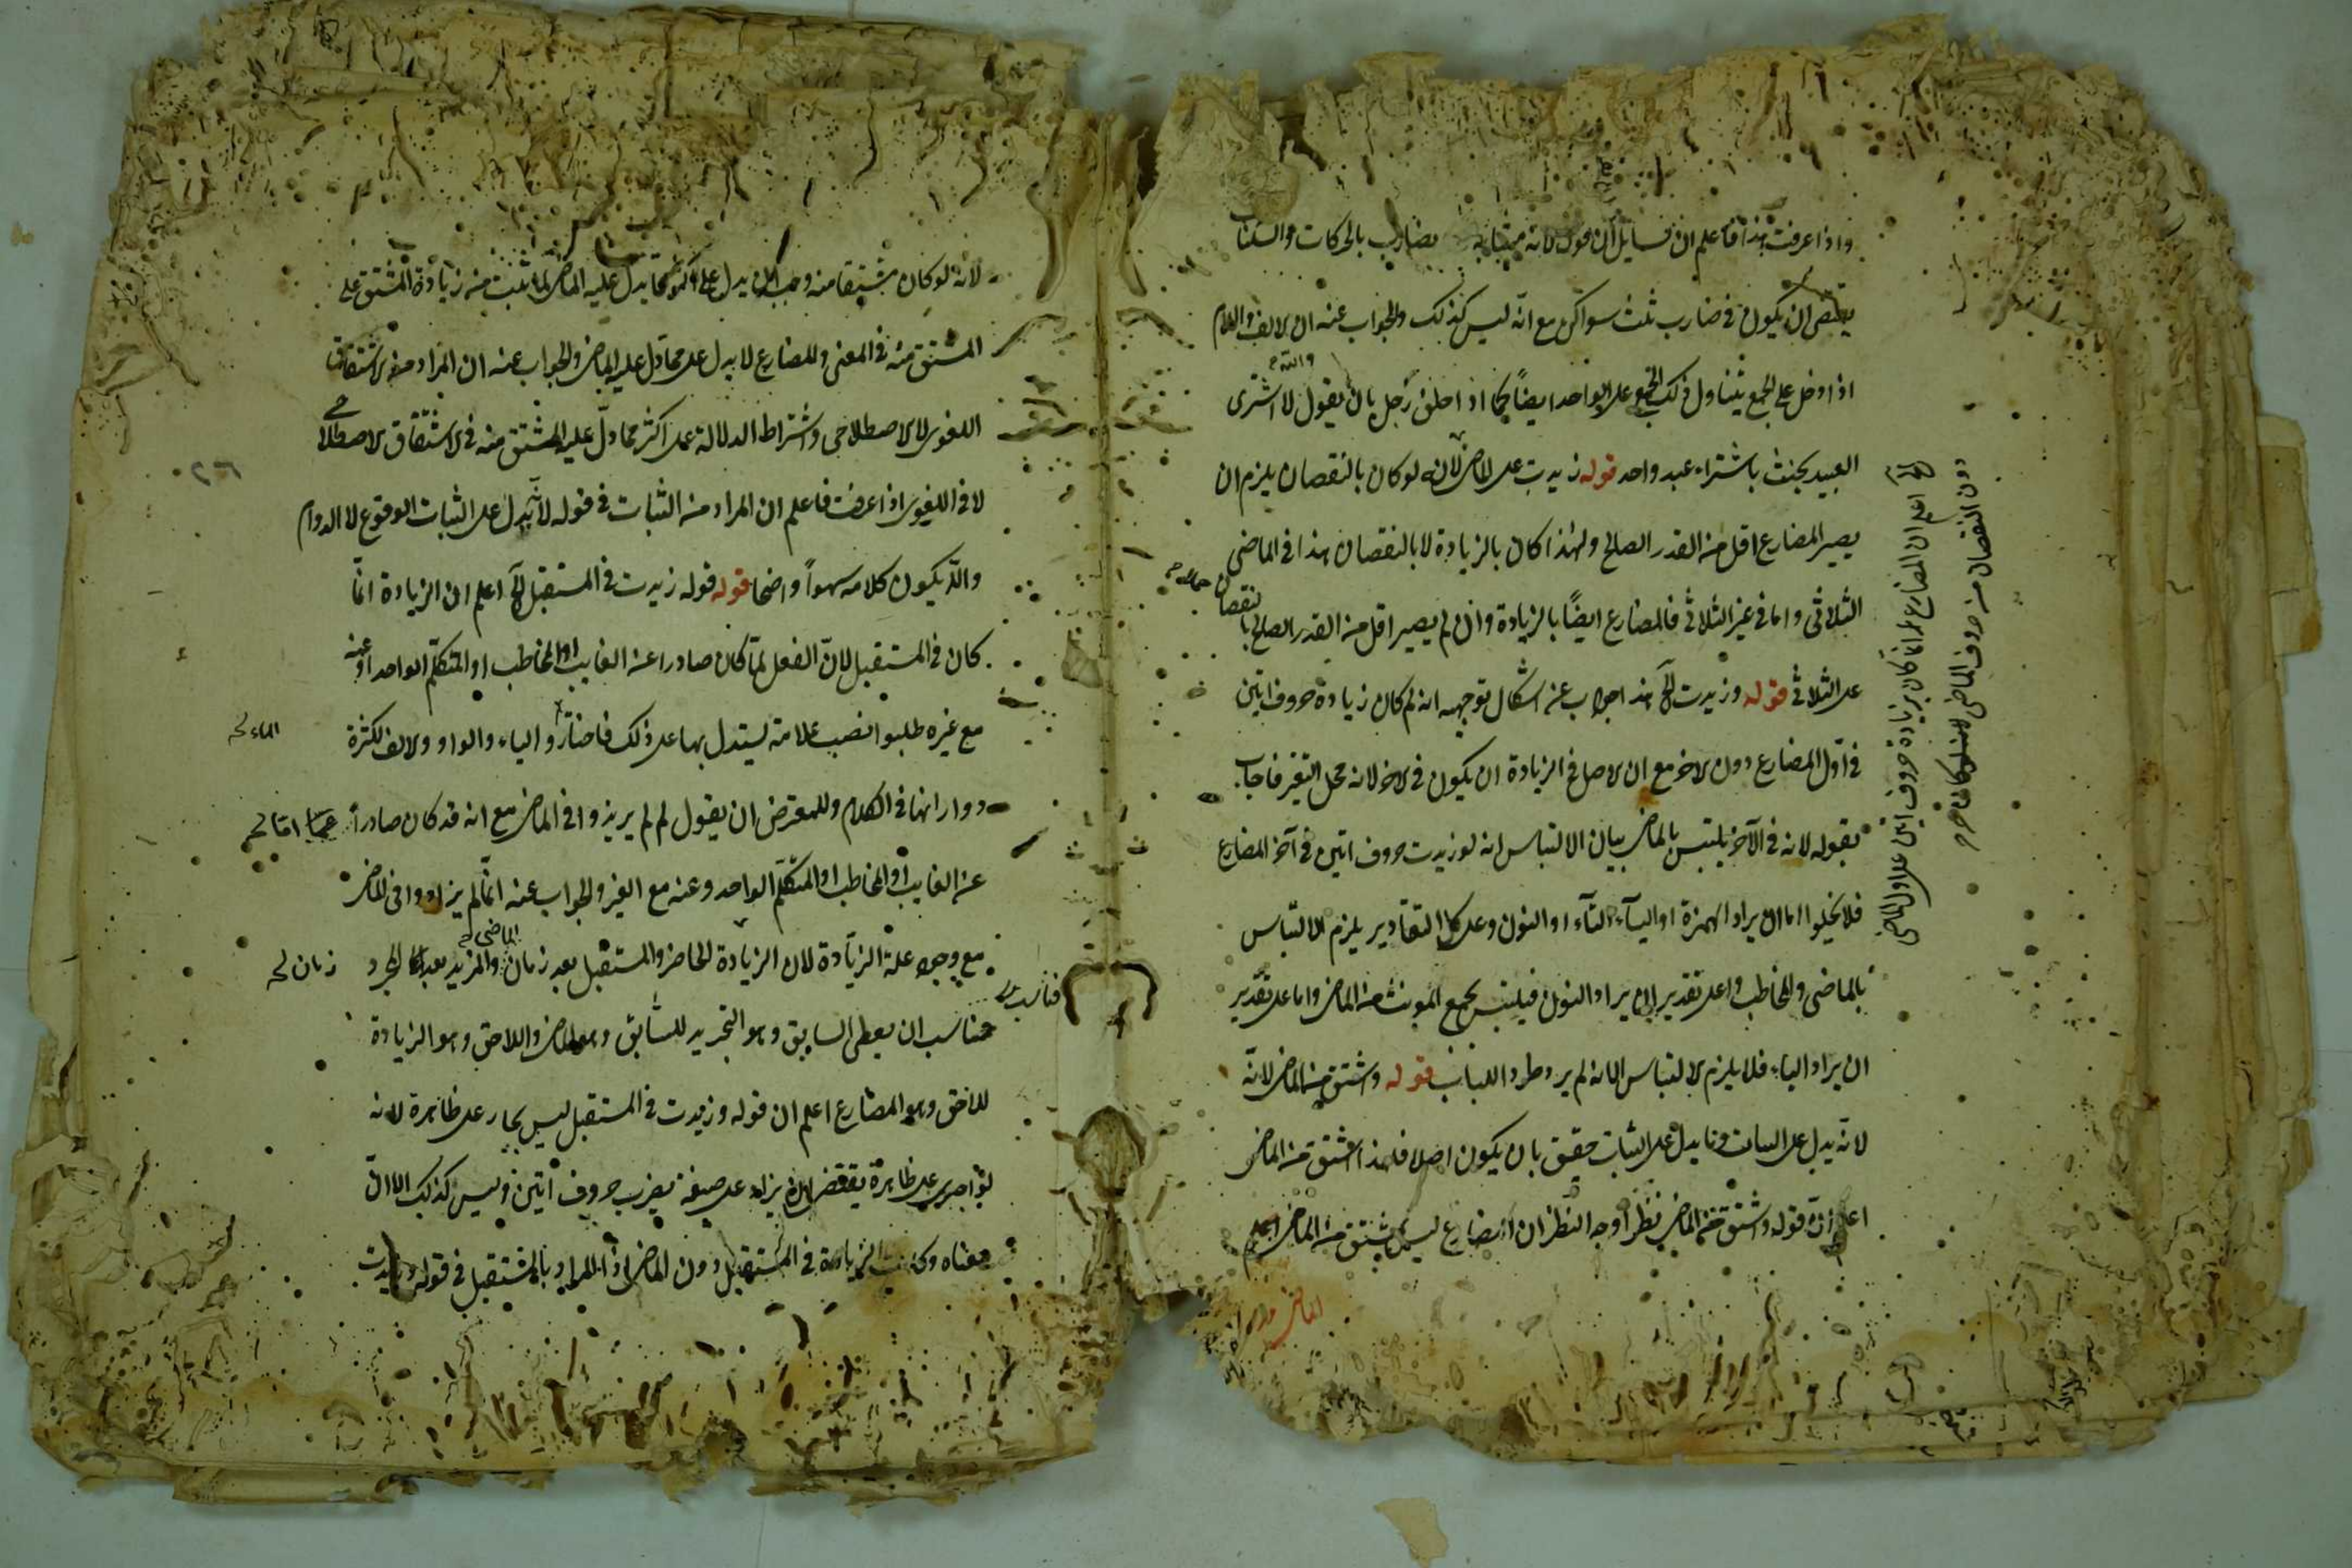 واذا عرفت هذا فاعلم ان لسايل ان يقول لانه مشابه يضارب بالحركات والسكنات
يقتضى ان يكون فى ضارب ثلث سواكن مع انه ليس كذلك والجواب عنه ان الالف واللام
اذا دخل على الجمع يتناول ذلك الجمع على الواحد ايضاً كما اذا حلف رجل بان يقول لا اشترى
والله
العبيد يحنث باشتراء عبد واحد قوله زيدت على الماضى لانه لو كان بالنقصان يلزم ان
يصير المضارع اقل من القدر الصالح ولهذا كان بالزيادة لا بالنقصان هذا فى الماضى
الثلاثى واما فى غير الثلاثى فالمضارع ايضاً بالزيادة وان لم يصير اقل من القدر الصالح بالنقصان
على الثلاثى قوله وزيدت الخ هذا جواب عن اشكال توجيهه انه لم كان زيادة حروف اتين
فى اول المضارع دون الاخر مع ان الاصل فى الزيادة ان يكون فى الاخر لانه محل التغير فاجاب
بقوله لانه فى الآخر يلتبس بالماضى بيان الالتباس انه لو زيدت حروف اتين فى آخر المضارع
فلا يخلوا اما ان يراد الهمزة او الياء او التاء او النون وعلى كل التقادير يلزم الالتباس
بالماضى والمخاطب واعلى تقدير ان يراد النون فيلتبس بجمع المونث من الماضى واما على تقدير
ان يراد الياء فلا يلزم الالتباس الا انه لم يرد طردا للباب قوله وشتق من الماضى لانه
لانه يدل على الثبات وما يدل على الثبات حقيق بان يكون اصلا فلهذا اشتق من الماضى
اعلم ان قوله وشتق من الماضى نظر وجه النظر ان المضارع ليس بمشتق من الماضى
اعلم ان المضارع انما كان بزيادة حروف اتين على اول الماضى
دون النقصان من حروف الماضى
لانه لو كان مشتقا منه وجب ان يدل على اكثر مما يدل عليه الماضى لما ثبت من زيادة المشتق على
المشتق منه فى المعنى والمضارع لا يدل على مما دل عليه الماضى والجواب عنه ان المراد منه الاشتقاق
اللغوى لا الاصطلاحى واشتراط الدلالة على اكثر مما دل عليه المشتق منه فى الاشتقاق الاصطلاحى
لا فى اللغوى اذا عرفت فاعلم ان المراد من الثبات فى قوله لانه يدل على الثبات الوقوع لا الدوام
والا يكون كلامه سهواً واضحا قوله قوله زيدت فى المستقبل الخ اعلم ان الزيادة انما
كان فى المستقبل لان الفعل لما كان صادرا عن الغايب او المخاطب او المتكلم الواحد او عنه
مع غيره طلبوا نصب علامة ليستدل بها على ذلك فاختاروا الياء والواو والالف لكثرة
دورانها فى الكلام وللمعترض ان يقول لم لم يزيدوا فى الماضى مع انه قد كان صادراً
عن الغايب او المخاطب او المتكلم الواحد وعنه مع الغير والجواب عنه انما لم يزادوا فى الماضى
مع وجود علة الزيادة لان الزيادة الحاضر والمستقبل بعد زمان الماضى والمزيد بعد المجرد
زمان
فناسب ان يعطى السابق وهو التجريد للسابق وهو الماضى واللاحق وهو الزيادة
للاحق وهو المضارع اعلم ان قوله وزيدت فى المستقبل ليس بجار على ظاهره لانه
لو اجرى على ظاهره يقتضى ان يزاد على صيغة يضرب حروف اتين وليس كذلك الا ان
معناه وكذ الزيادة فى المستقبل دون الماضى اذ المراد بالمستقبل فى قوله وزيدت